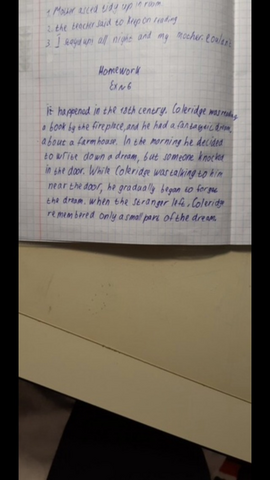 1. Mother asked tidy up in room
2. the teacher said to keep on reading
3. I stayed up all night and my mother
Homework
Ex № 6
It happened in the 18th century. Coleridge was reading
a book by the fireplace, and he had a fantastic dream
about a farmhouse. In the morning he decided
to write down a dream, but someone knocked
in the door. While Coleridge was talking to him
near the door, he gradually began to forget
the dream. When the stranger left, Coleridge
remembered only a small part of the dream